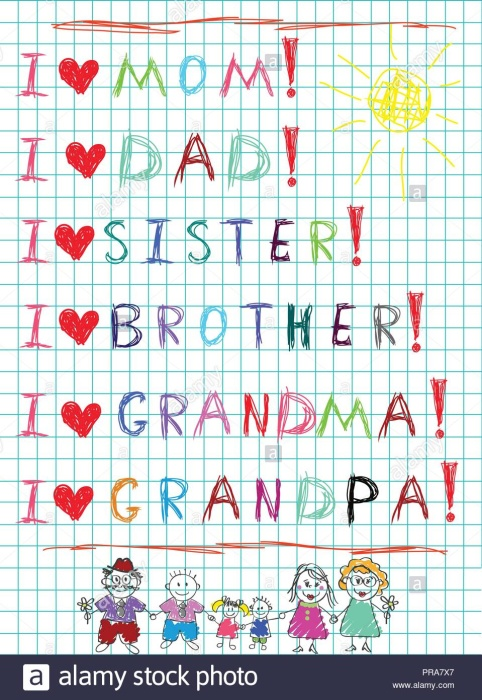 I ♥ MOM!
I ♥ DAD!
I ♥ SISTER!
I ♥ BROTHER!
I ♥ GRANDMA!
I ♥ GRANDPA!
alamy
alamy
alamy
a alamy stock photo
PRA7X7
www.alamy.com